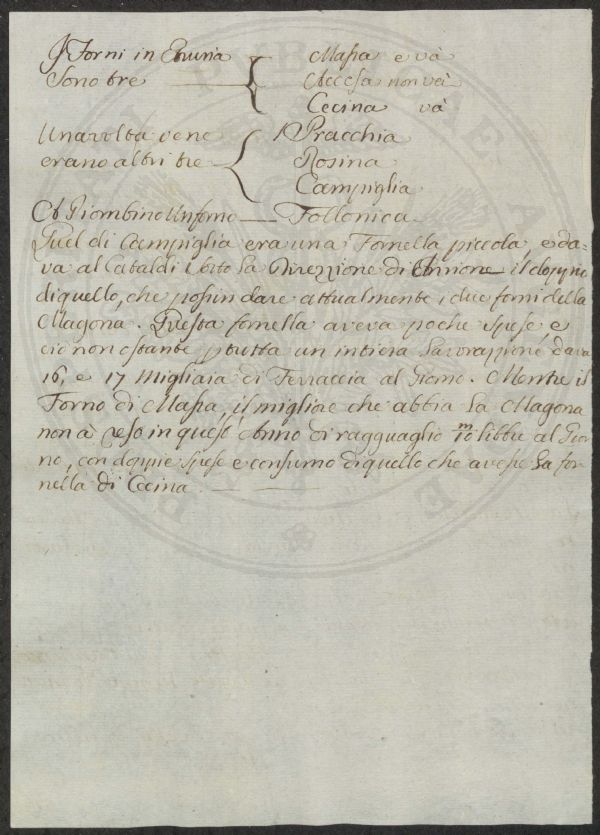 I Forni in Etruria { Massa e và
Sono tre { Accesa non và
{ Cecina và
Una volta vene { Pracchia
erano altri tre { Rosina
{ Campiglia
A Piombino un forno — Follonica
Quel di Campiglia era una Fornella piccola, e da=
va al Cataldi sotto la Direzzione di il doppio
di quello, che possin dare attualmente i due forni della
Magona. Questa fornella aveva poche spese, e
ciò non ostante p tutta un intiera Lavorazzione dava
16, e 17 Migliaia di Ferraccia al Giorno. Mentre il
Forno di Massa, il migliore che abbia la Magona
non à reso in quest Anno di ragguaglio m/10 libbre al Gior
no, con doppie spese e consumo di quello che avesse la for
nella di Cecina. — —